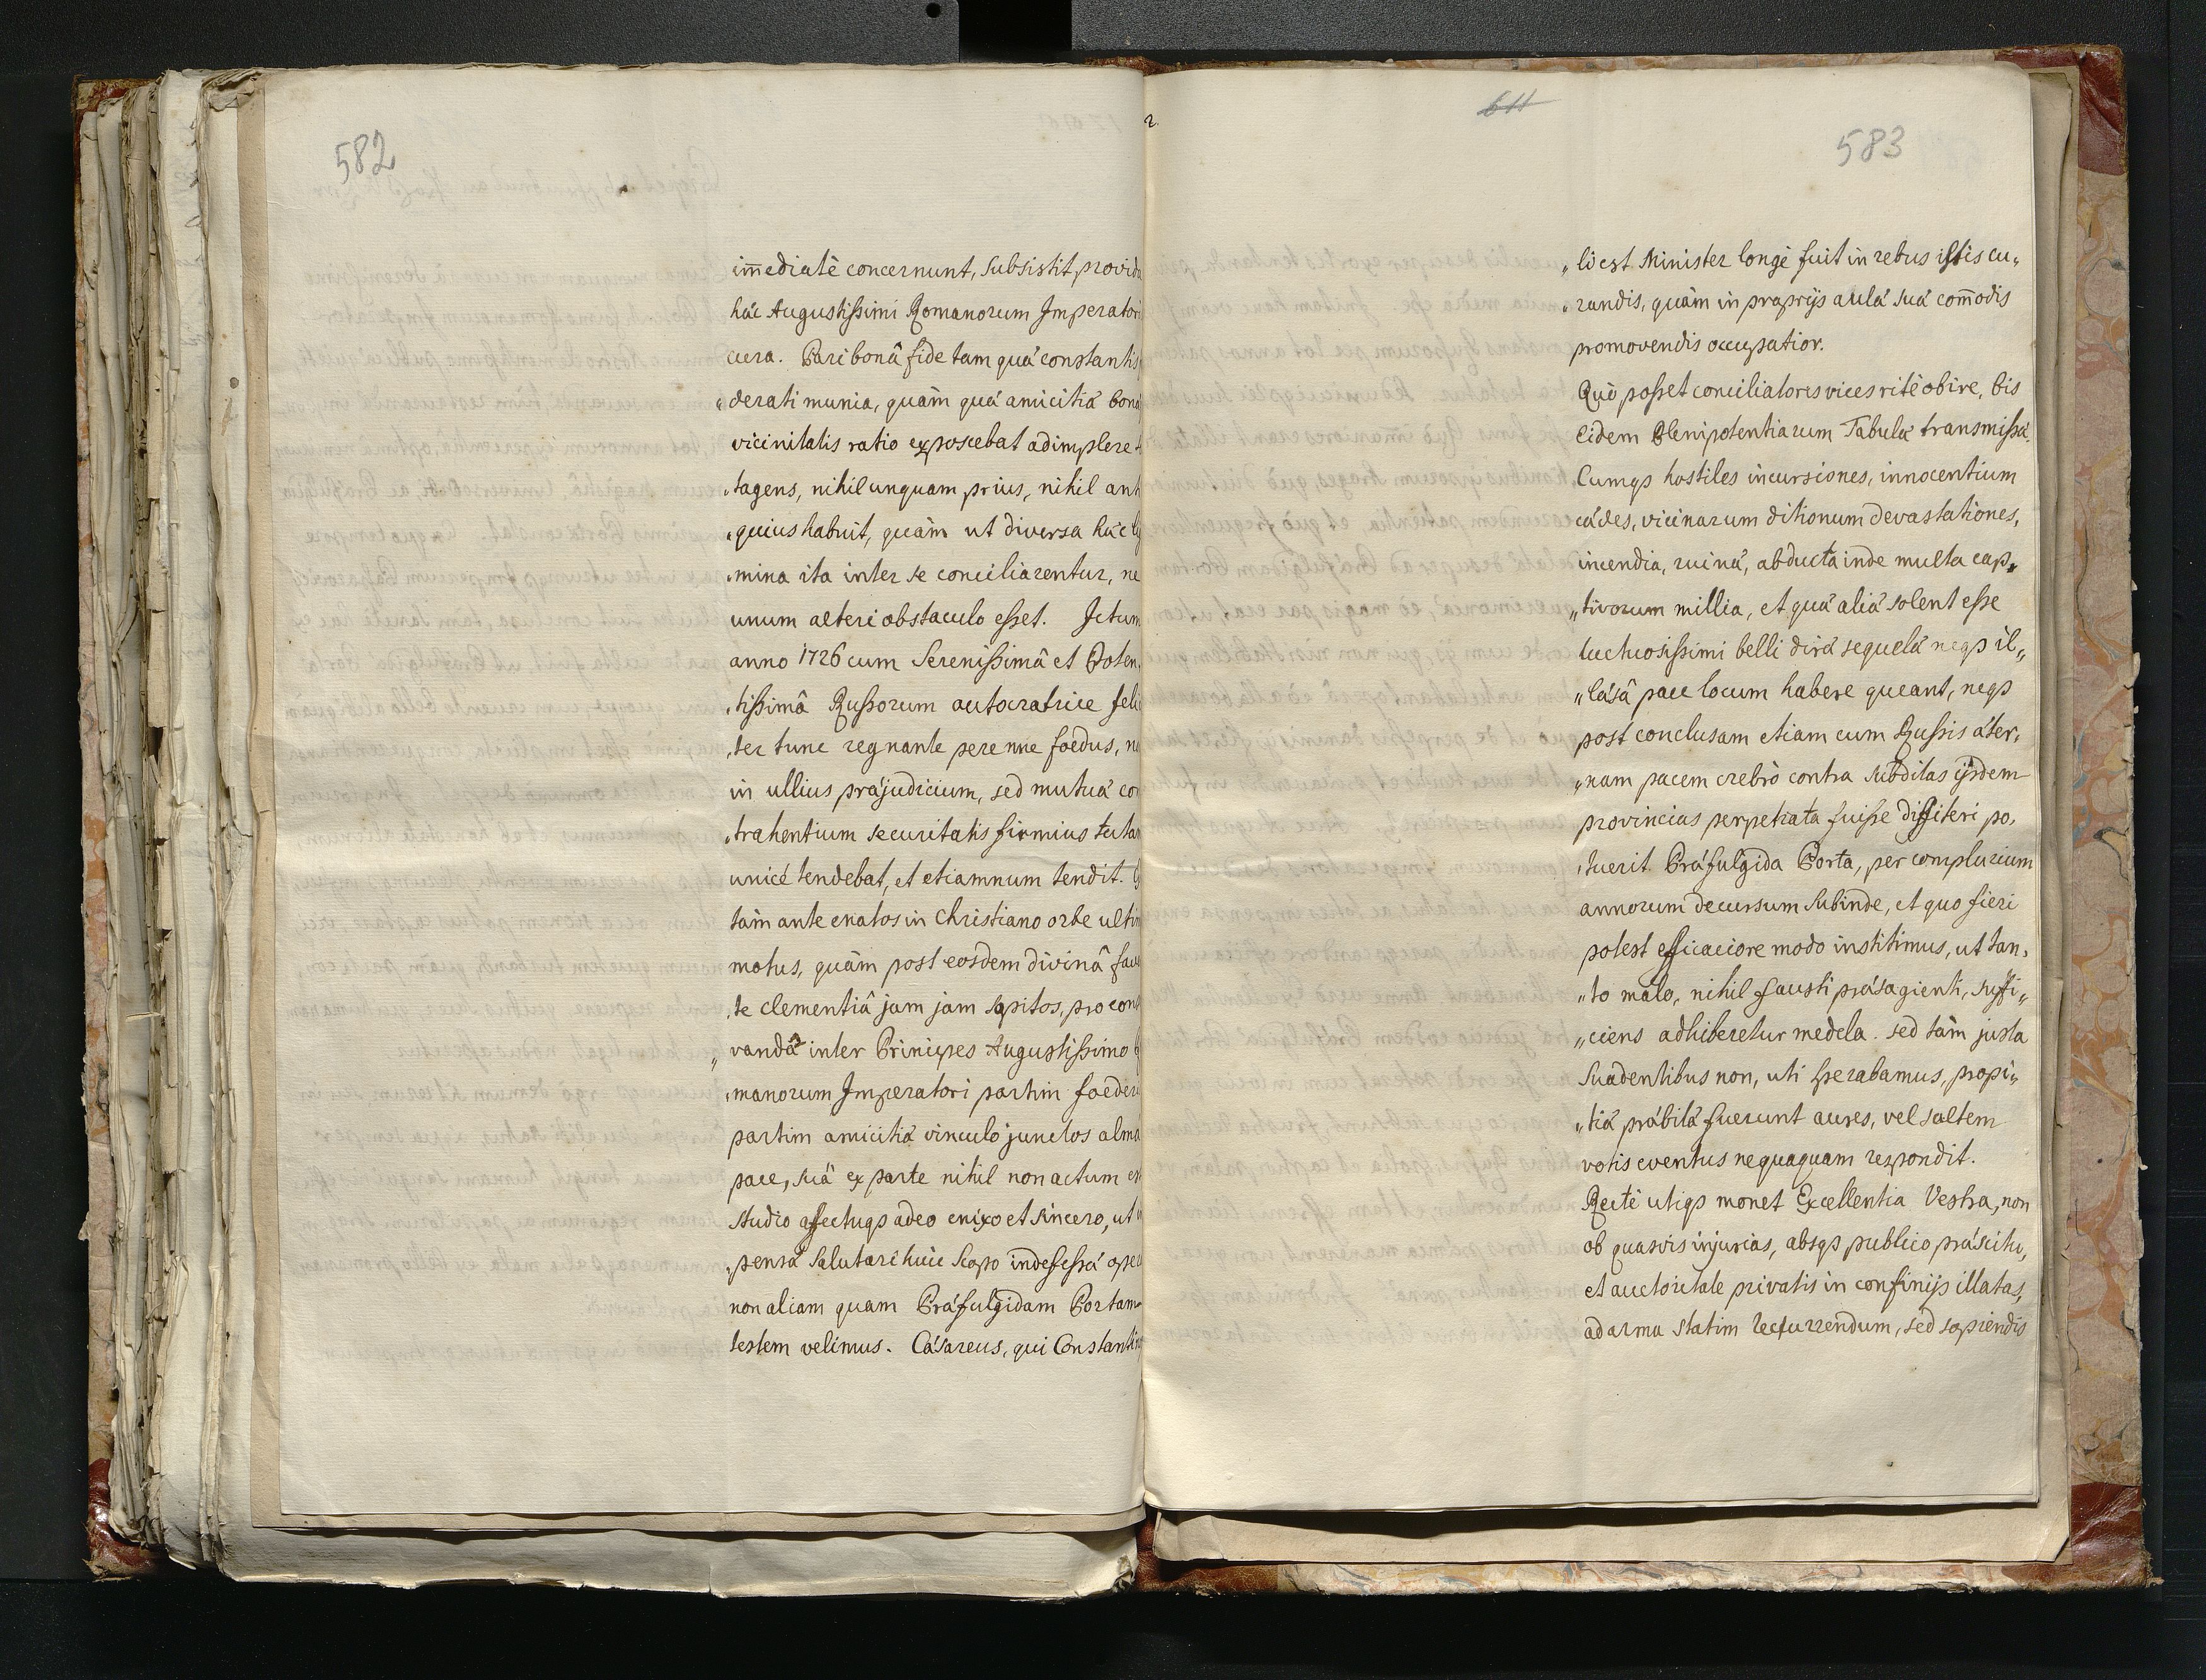 582
im̄ediatè concernunt, subsistit provida
hác Augustissimi Romanorum Imperatori
cura. Pari bonâ fide tam quá constantis
„derati munia, quàm quá amicitiá boná
vicinitatis ratio exposcebat adimplere
„tagens, nihil unquam prius, nihil anti
„quius habuit, quàm ut diversa hác
„mina ita inter se conciliarentur, ne
unum alteri obstaculo esset. Ictum
anno 1726 cum Serenissimâ et Poten,
„tissimâ Russorum autocratrice feli
„ter tunc regnante perenne foedus, n
in ullius prájudicium, sed mutuá con
„trahentium securitatis firmius tutan
unicé tendebat, et etiamnum tendit.
tàm ante enatos in Christiano orbe ultim
motus, quàm post eosdem divinâ fave
„te clementiâ jam jam sopitos, pro con
„vandâ inter Principes Augustissimo
„manorum Imperatori partim foedere
partim amicitiá vinculo junctos alma
pace, suá ex parte nihil non actum e
studio affectuqs adeo enixo et sincero, ut
„pensá salutari huic scopo indefessá oper
non aliam quam Práfulgidam Portam
testem velimus. Cásareus, qui Constantin
2.
611
583
„li est Minister longè fuit in rebus istis cu„
„randis, quàm in proprijs aulá suá com̄odis
promovendis occupatior.
Quò posset conciliatoris vices ritè obire, bis
Eidem Plenipotentiarum Tabulá transmissá.
Cumqs hostiles incursiones, innocentium
cádes, vicinarum ditionum devastationes,
incendia, ruiná, abducta inde multa cap„
„tivorum millia, et quá aliá solent esse
luctuosissimi belli dirá sequelá neqs il„
„lásâ pace locum habere queant, neqs
post conclusam etiam cum Russis áter„
„nam pacem crebrò contra subditas ijsdem
provincias perpetrata fuisse diffiteri po„
„tuerit Práfulgida Porta, per complurium
annorum decursum subinde, et quo fieri
potest efficaciore modo institimus, ut tan„
„to malo, nihil fausti prásagienti, suffi„
„ciens adhiberetur medela. sed tàm justa
suadentibus non, uti sperabamus, propi„
„tiá prábitá fuerunt aures, vel saltem
votis eventus nequaquam respondit.
Rectè utiqs monet Excellentia Vestra, non
ob quasvis injurias, absqs publico prásitu,
et auctoritate privatis in confinijs illatas,
ad arma statim recurrendum, sed sopiendis